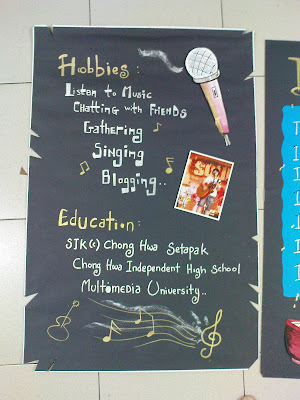 Hobbies:
Listen to Music
Chatting with FRIENDS
Gathering
Singing
Blogging..
Education:
SJK(c) Chong Hwa Setapak
Chong Hwa Independent High School
Multimedia University..